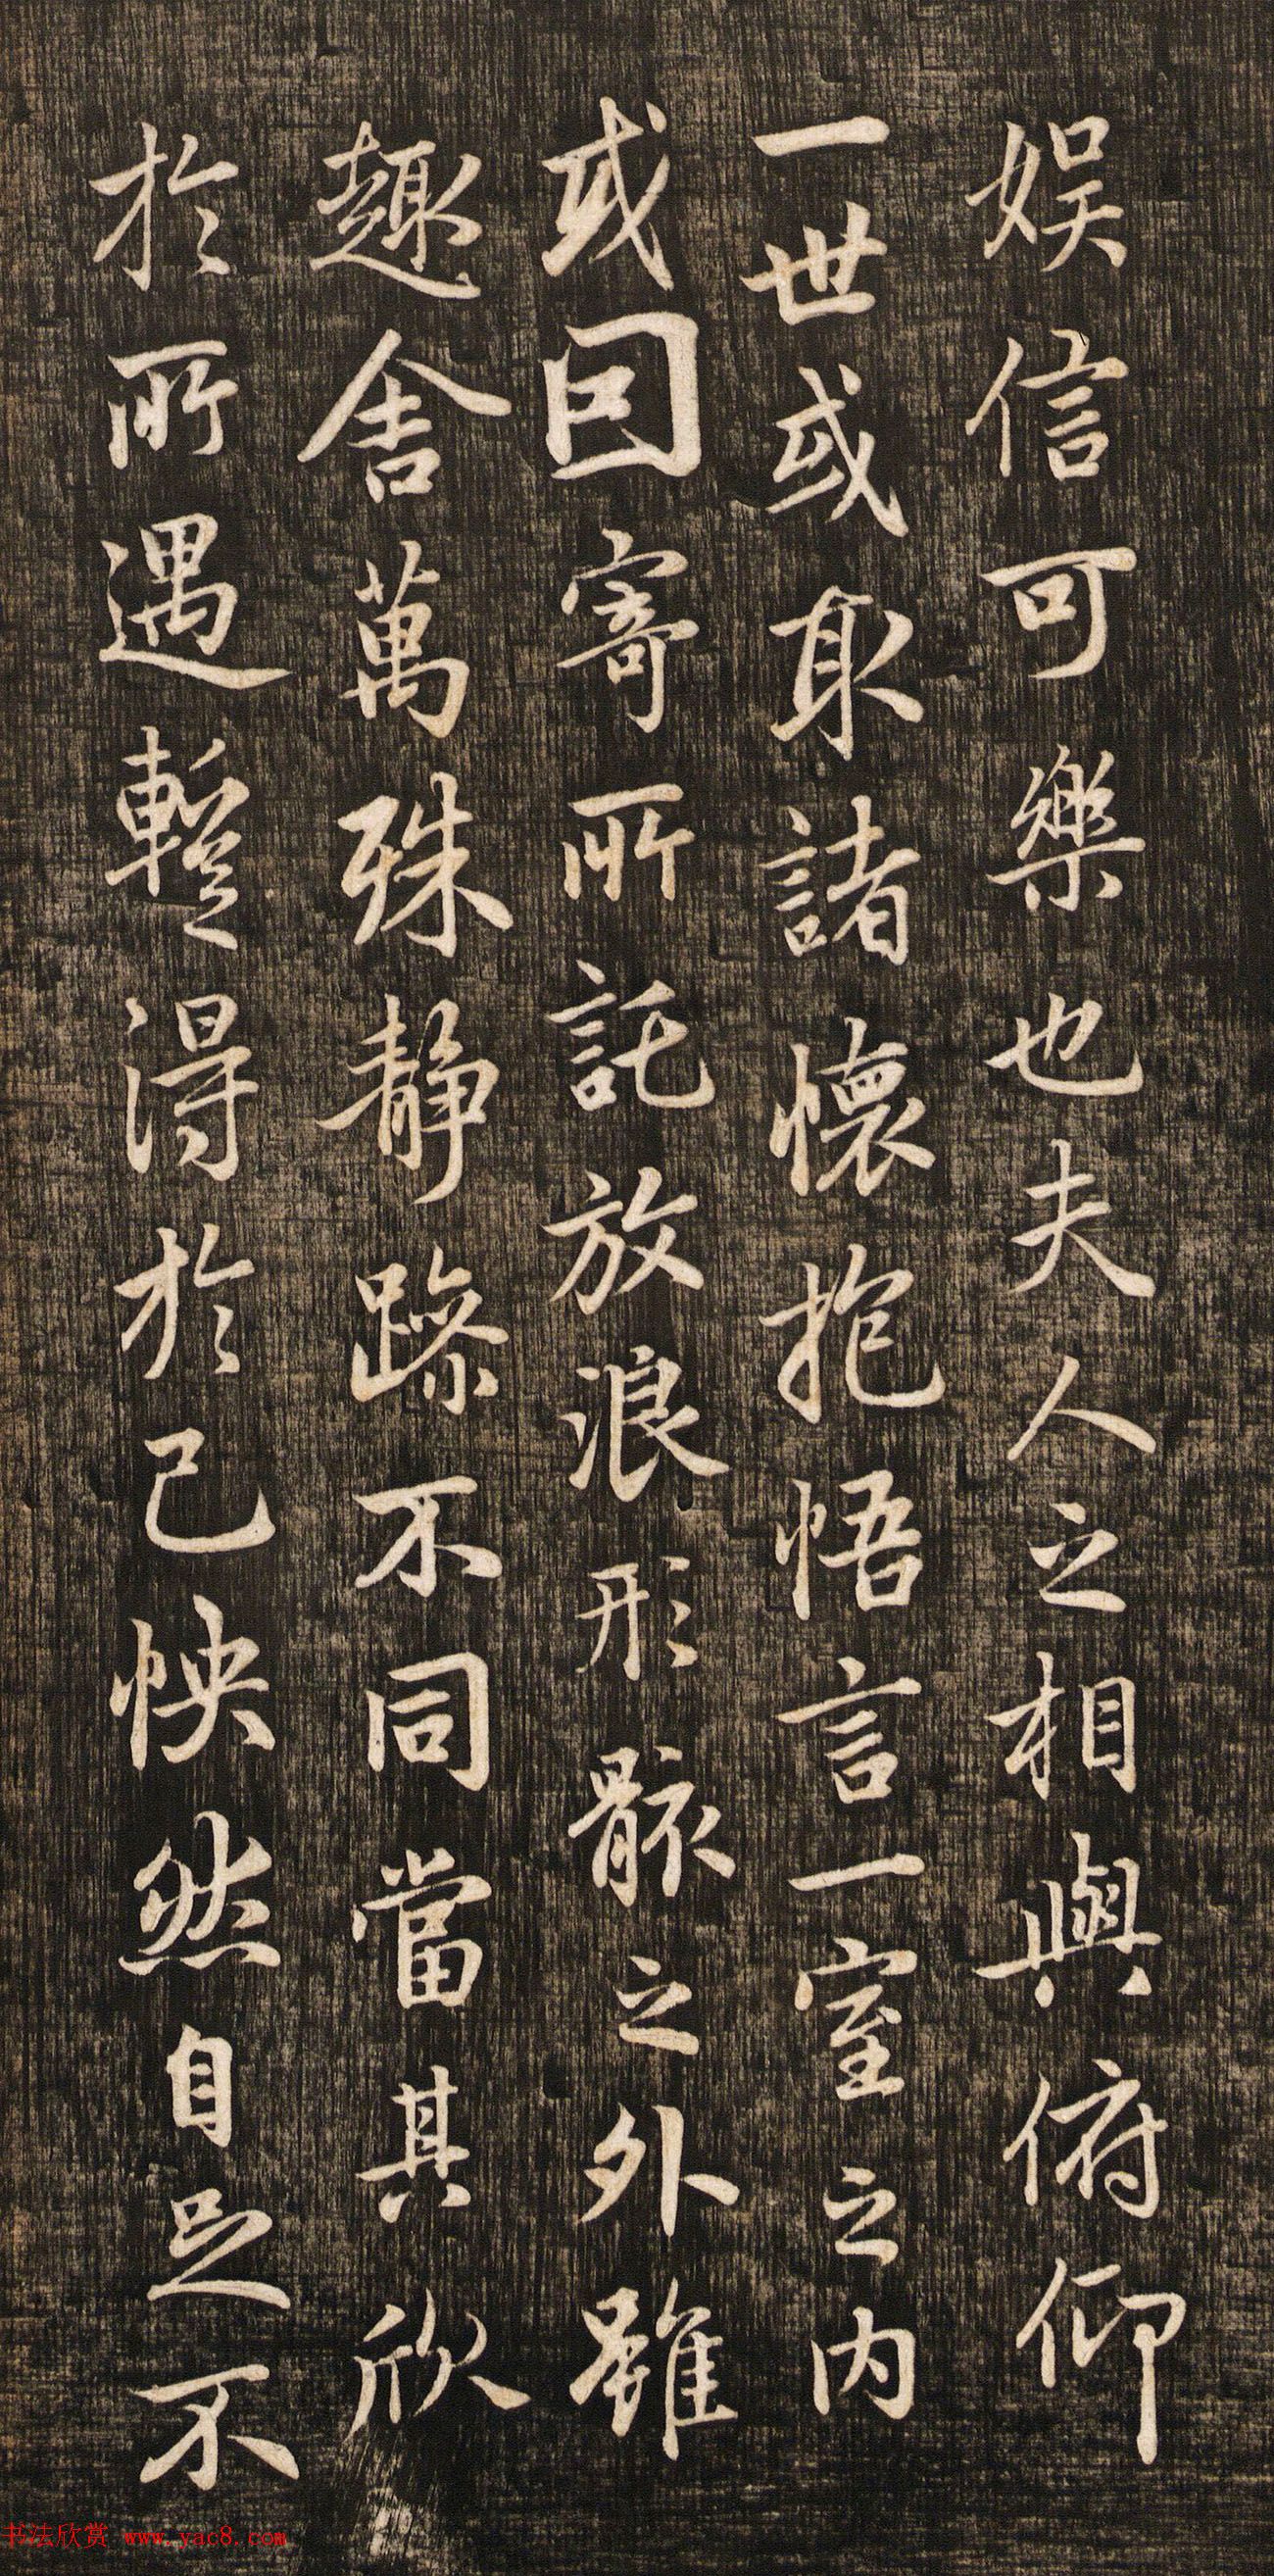 娱信可樂也夫人之相與俯仰
一世或取諸懷抱悟言一室之内
或因寄所託放浪形骸之外雖
趣舎萬殊静躁不同當其欣
於所遇暫得於己怏然自足不
书法欣赏 www.yac8.com